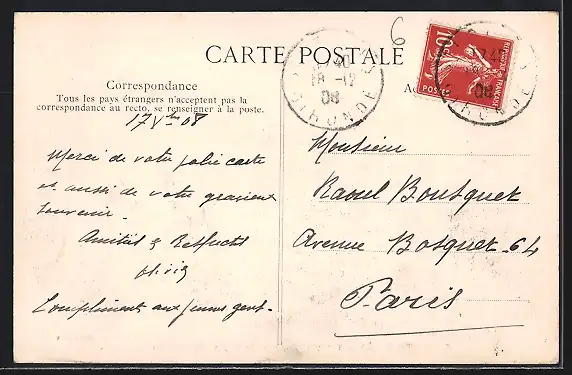 CARTE POSTALE
6
Correspondance
Tous les pays étrangers n'acceptent pas la
correspondance au recto, se renseigner à la poste.
17 Xbre 08
Merci de votre jolie carte
et aussi de votre gracieux
souvenir.
Amitiés & Respects
Compliments aux jeunes gens.
40
18 -12
08
GIRONDE
10c
POSTES
REPUBLIQUE FRANÇAISE
740
08
GIRONDE
Monsieur
Raoul Bousquet
Avenue Bosquet 64
Paris